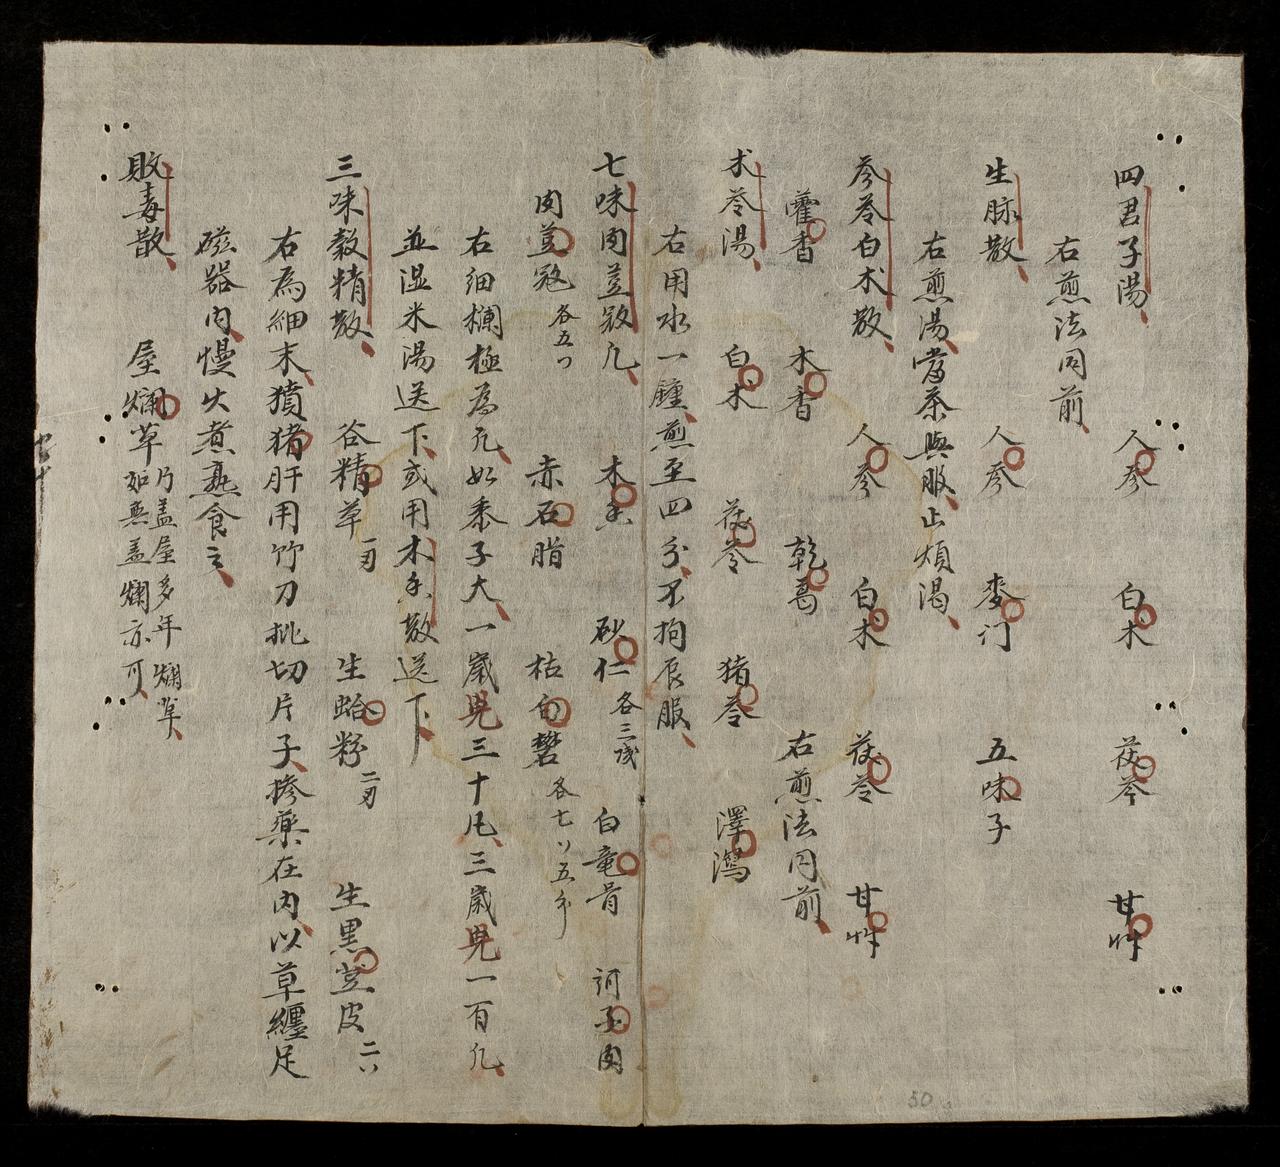 四君子陽 人參 白木 茯芩 甘艸
右煎法同前
生脉散 人參 麥门 五味子
右煎湯當茶與服止煩渴
參苓白术散 人參 白木 茯苓 甘艸
藿香 木香 乾葛 右煎法同前
术苓湯 白木 茯苓 猪苓 澤瀉
右用水一鍾煎至四分不拘辰服
七味肉荳蔻凢 木香 砂仁各三戔 白竜骨 訶子肉
肉荳蔻各五 赤石脂 枯白礬各七 五
右细欄極為凢如黍子大一歲児三十凢三歲児一百凢
並湿米湯送下或用木香散送下
三味穀精散 谷精草一刃 生蛤粉二刃 生黒荳皮二
右為細末獖猪肝用竹刀批切片子摻藥在内以草纏足
磁器内慢火煮熟食之
敗毒散 屋爛草乃盖屋多年爛草
如無盖爛亦可
50